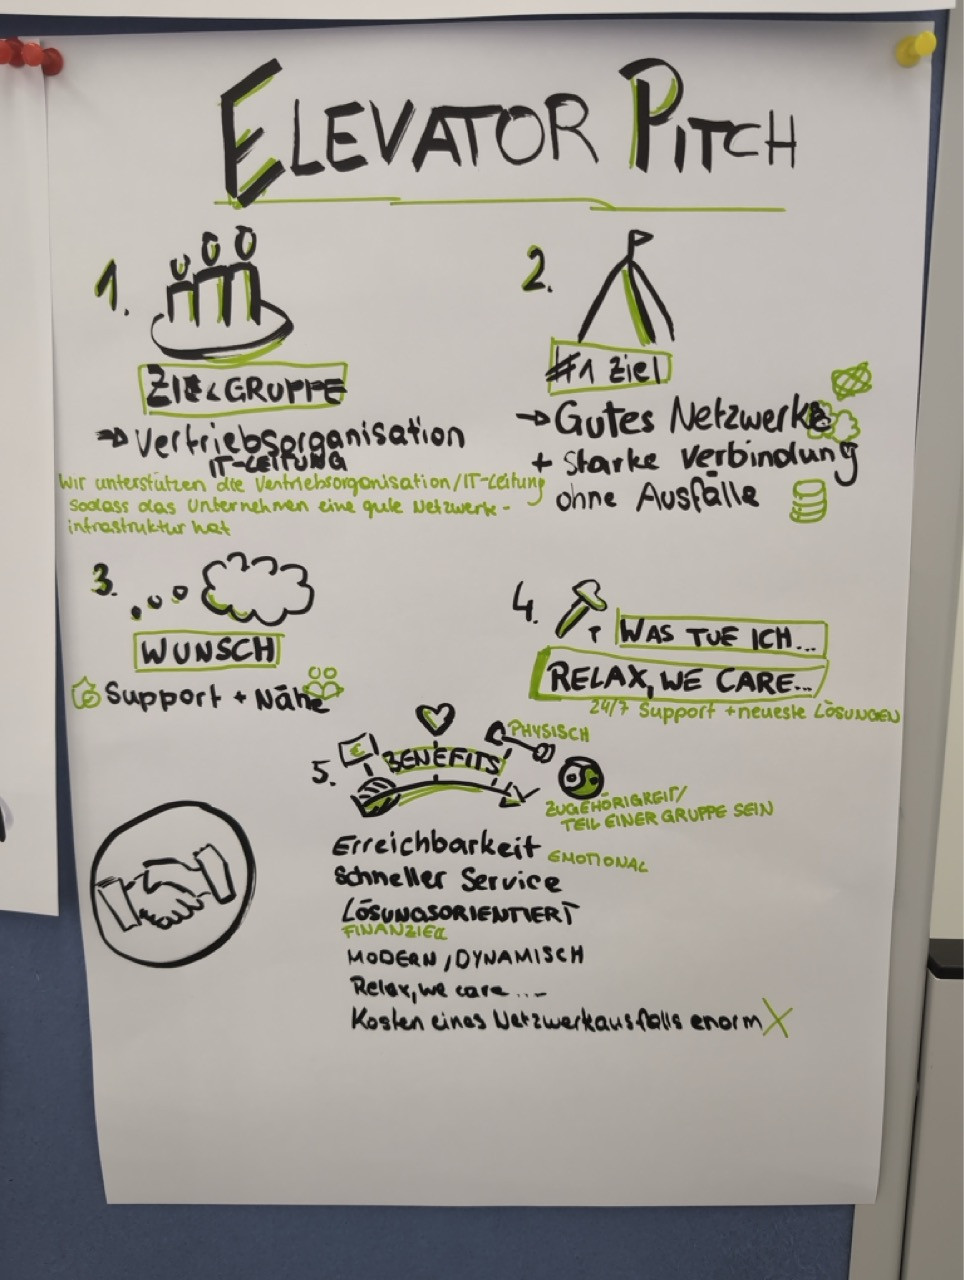 ELEVATOR PITCH
1.
ZIELGRUPPE
→ Vertriebsorganisation
IT-LEITUNG
Wir unterstützen die Vertriebsorganisation/IT-Leitung
Sodass das Unternehmen eine gute Netzwerk-
infrastruktur hat
2.
#1 Ziel
→ Gutes Netzwerke
+ Starke Verbindung
ohne Ausfälle
3.
WUNSCH
Support + Nähe
4.
WAS TUE ICH...
RELAX, WE CARE...
24/7 Support + neueste LÖSUNGEN
5.
€
BENEFITS
PHYSISCH
ZUGEHÖRIGKEIT/
TEIL EINER GRUPPE SEIN
Erreichbarkeit
EMOTIONAL
Schneller Service
LÖSUNGSORIENTIERT
FINANZIELL
MODERN, DYNAMISCH
Relax, we care....
Kosten eines Netzwerkausfalls enorm X